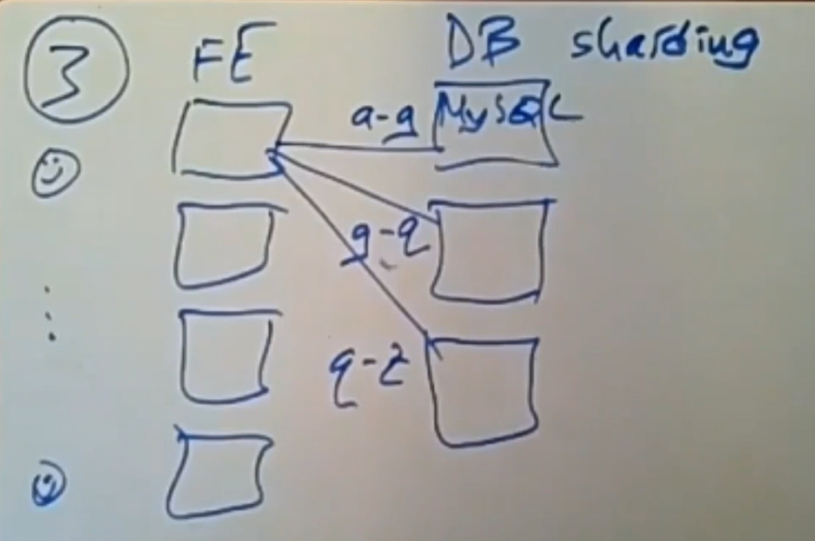 3 FE DB sharding
a-g MySQL
g-q
q-z